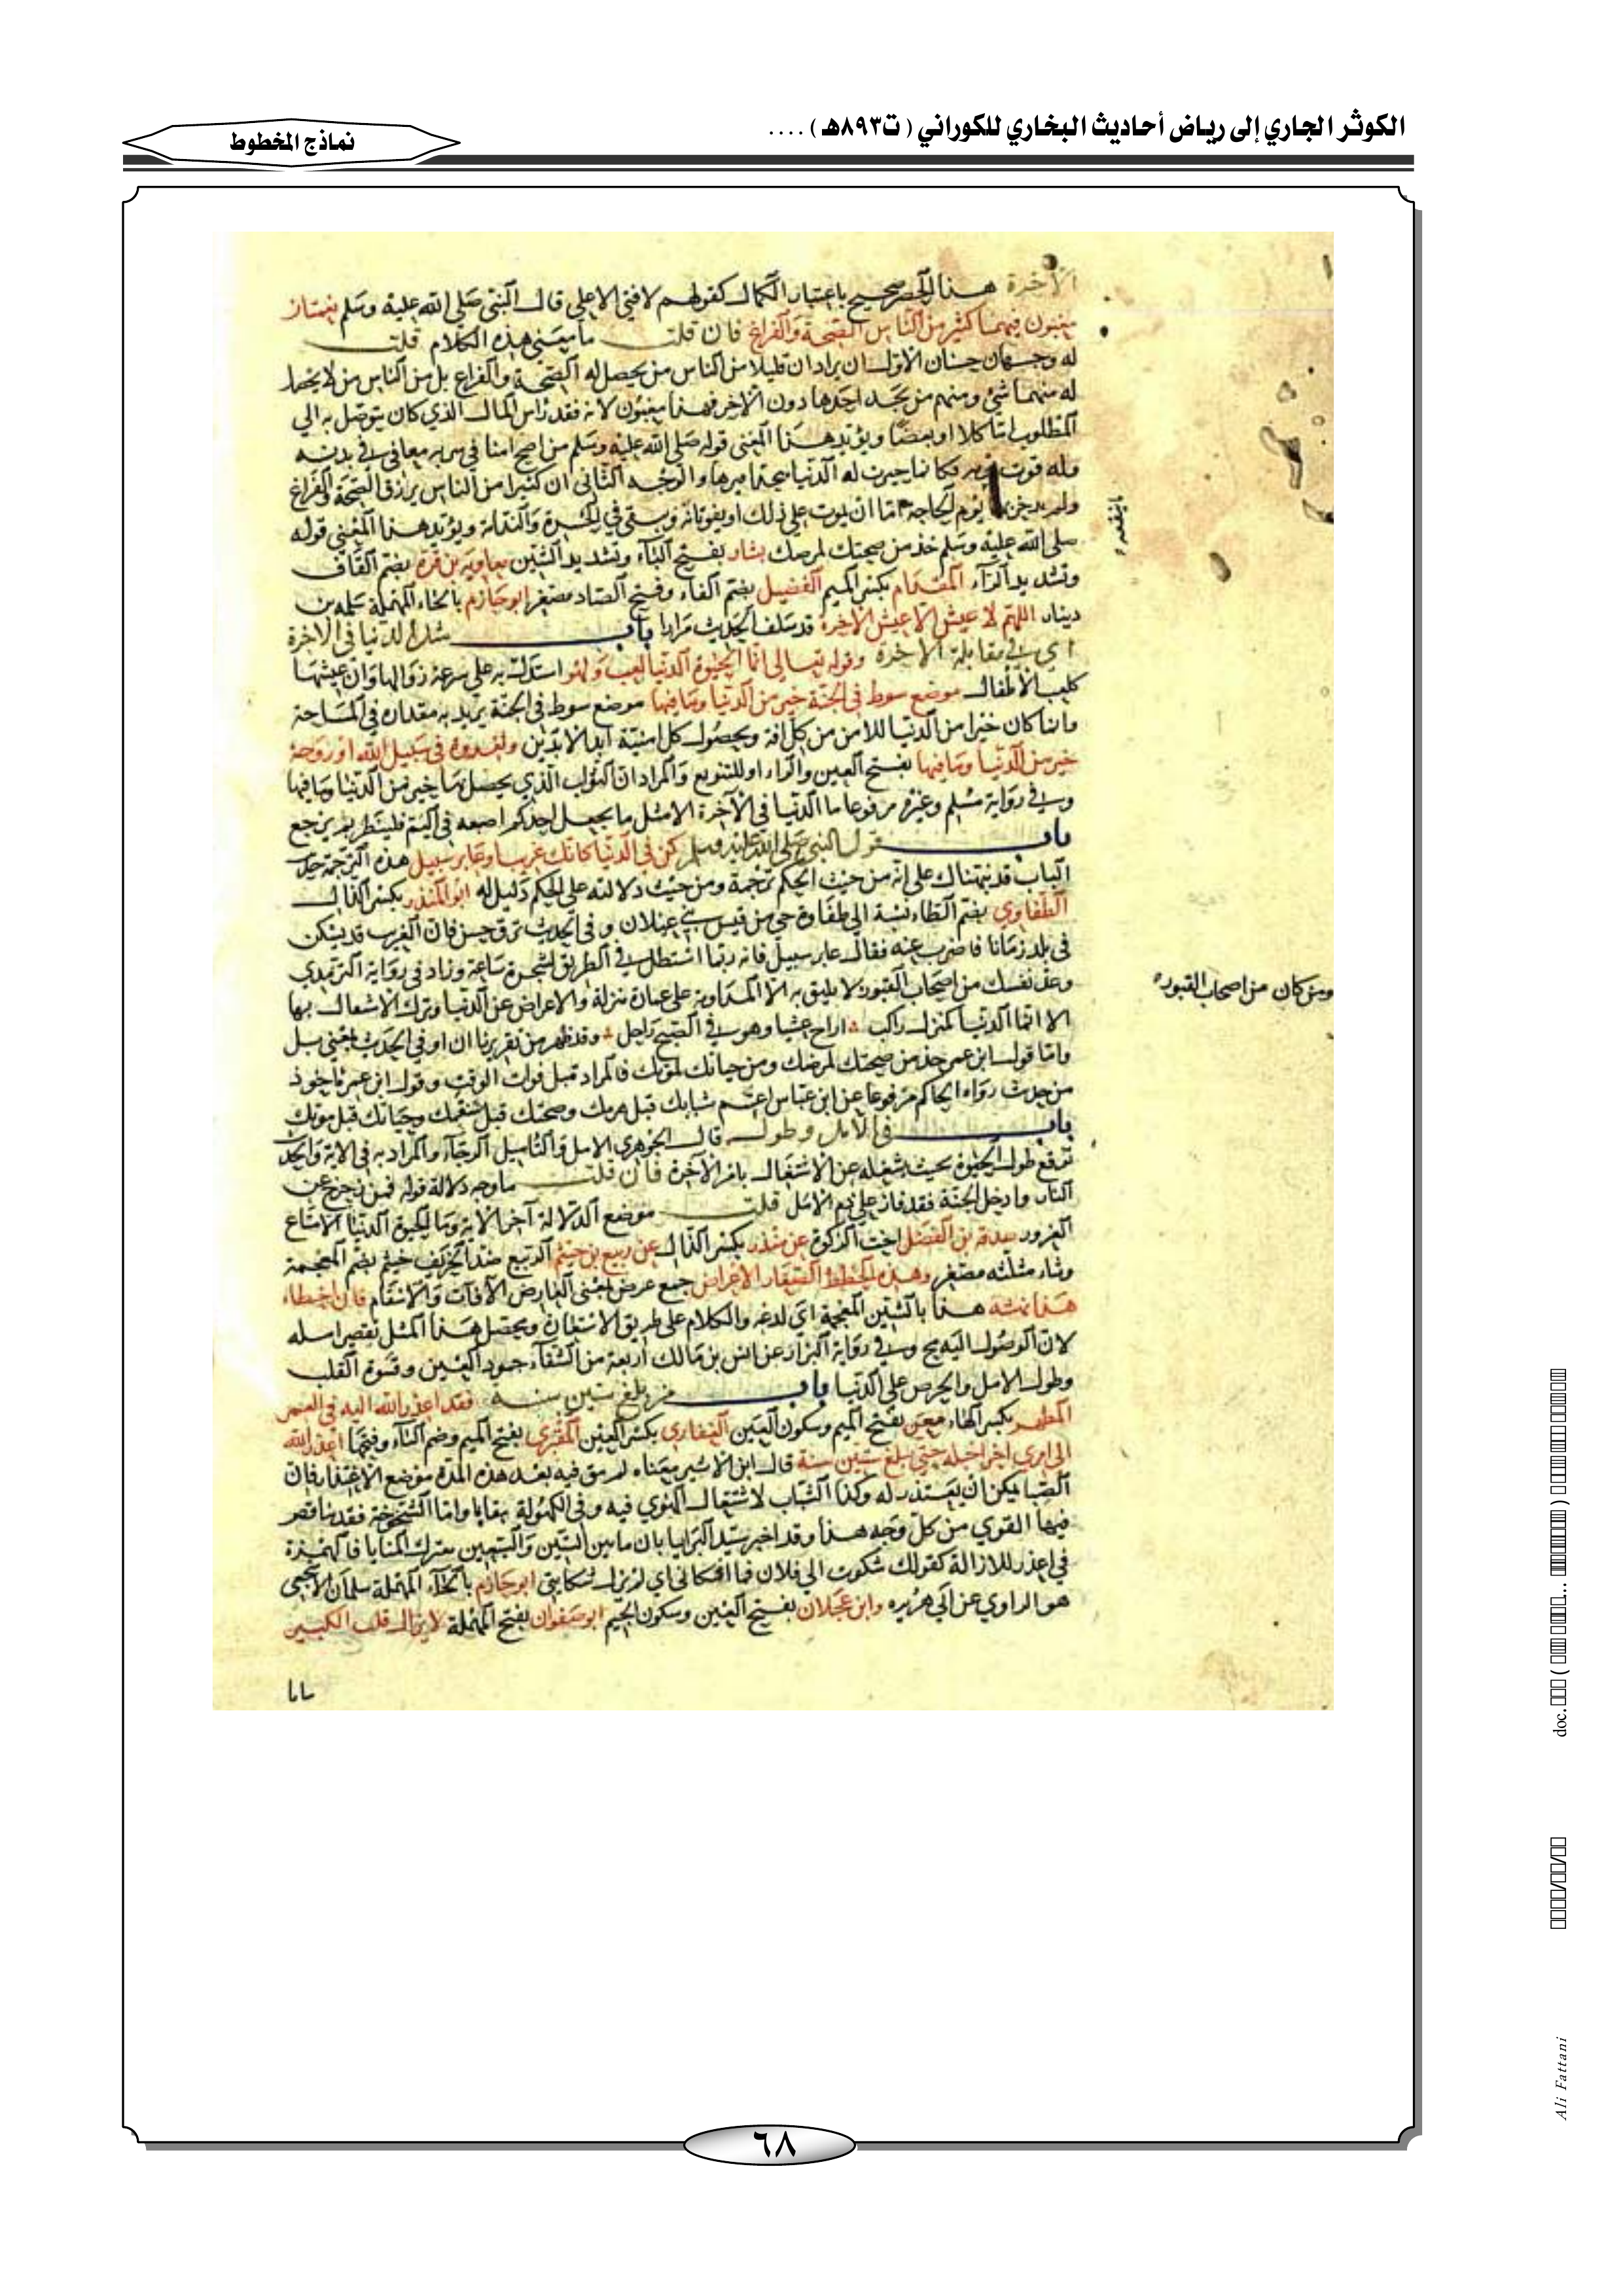 الكوثر الجاري إلى رياض أحاديث البخاري للكوراني ( ت٨٩٣هـ ) ....
نماذج المخطوط
الآخرة هذا الحصر صحيح باعتبار الكمال كقولهم لا فتى الا علي قال النبي صلى الله عليه وسلم نعمتان
مغبون فيهما كثير من الناس الصحة والفراغ فان قلت ما معنى هذا الكلام قلت
له وجهان حسنان الاول ان يراد ان قليلا من الناس من يحصل له الصحة والفراغ بل من الناس من لا يحصل
له منهما شئ ومنهم من يجد احدها دون الاخر فهذا مغبون لانه فقد راس المال الذي كان يتوصل به الى
المطلوب اما كلا او بعضا ويؤيد هذا المعنى قوله صلى الله عليه وسلم من اصبح امنا في سربه معافى في بدنه
وله قوت يومه فكانما حيزت له الدنيا بحذافيرها والوجه الثاني ان كثيرا من الناس يرزق الصحة والفراغ
ولم يدخر يوم الحاجة اما ان يموت على ذلك او يفوتانه ويبقى في الحسرة والندامة ويؤيد هذا المعنى قوله
صلى الله عليه وسلم خذ من صحتك لمرضك بشار بفتح الباء وتشديد الشين معاوية بن قرة بضم القاف
وتشديد الراء المقدام بكسر الميم الفضيل بضم الفاء وفتح الضاد مصغر ابو حازم بالحاء المهملة سلمة بن
دينار اللهم لا عيش الا عيش الآخرة قد سلف الحديث مرارا باب مثل الدنيا في الاخرة
اي في مقابلة الآخرة وقوله تعالى انما الحيوة الدنيا لعب ولهو استدل به على سرعة زوالها وان عيشها
كلعب الأطفال موضع سوط في الجنة خير من الدنيا وما فيها موضع سوط في الجنة يريد به مقداره في المساحة
وانما كان خيرا من الدنيا للامن من كل افة وبحصول كل امنية ابد الابدين ولغدوة في سبيل الله او روحة
خير من الدنيا وما فيها بفتح الغين والراء او للتنويع والمراد ان الثواب الذي يحصل بها خير من الدنيا وما فيها
وفي رواية مسلم وغيره مرفوعا ما الدنيا في الآخرة الا مثل ما يجعل احدكم اصبعه في اليم فلينظر بم يرجع
باب قول النبي صلى الله عليه وسلم كن في الدنيا كانك غريب او عابر سبيل هذه الترجمة جل
الباب قد نبهناك على انه من حيث الحكم ترجمة ومن حيث دلالته على الحكم دليل له ابو المنذر بكسر الذال
الطفاوي بضم الطاء نسبة الى طفاوة حي من قيس بن عيلان وفي الحديث ترق حسن فان الغريب قد يسكن
في بلد زمانا فاضرب عنه فقال عابر سبيل فانه ربما استظل في الطريق لشجرة ساعة وزاد في رواية الترمذي
وعد نفسك من اصحاب القبور لا يليق به الا المداومة على عمارة منزله والاعراض عن الدنيا وترك الاشتغال بها
الا انما الدنيا كمنزل راكب اراح عشيا وهو في الصبح راحل وقد ظهر من تقريرنا ان او في الحديث بمعنى بل
واما قول ابن عمر خذ من صحتك لمرضك ومن حياتك لموتك فالمراد قبل فوات الوقت وقول ابن عمر ماخوذ
من حديث رواه الحاكم مرفوعا عن ابن عباس اغتنم شبابك قبل هرمك وصحتك قبل سقمك وحياتك قبل موتك
باب في الامل وطوله قال الجوهري الامل والتاميل الرجاء والمراد به في الآية والحديث
توقع طول الحيوة بحيث يشغله عن الاشتغال بامر الآخرة فان قلت ما وجه دلالة قوله فمن زحزح عن
النار وادخل الجنة فقد فاز على ذم الامل قلت موضع الدلالة آخر الآية وما الحيوة الدنيا الا متاع
الغرور صدقة بن الفضل اخت الزكوة عن منذر بكسر الذال عن ربيع بن خيثم الربيع ضد الخريف خيثم بضم المعجمة
وثاء مثلثه مصغر وهذه الخطط الصغار الاعراض جمع عرض بمعنى العارض الآفات والاسقام فان اخطاه
هذا نهشه هذا بالشين المعجمة اي لدغه والكلام على طريق الاستعارة ويحصل هذا المثل تقصير امله
لان الوصول اليه محال وفي رواية البزار عن انس بن مالك اربعة من الشقاء جمود العين وقسوة القلب
وطول الامل والحرص على الدنيا باب من بلغ ستين سنة فقد اعذر الله اليه في العمر
المطهر بكسر الهاء معن بفتح الميم وسكون العين الغفاري بكسر الغين المقبري بفتح الميم وضم الباء وفتحها اعذر الله
الى امرئ اخر اجله حتى بلغ ستين سنة قال ابن الاثير معناه لم يبق فيه بعد هذه المدة موضع الاعتذار فان
الصبا يمكن ان يعتذر له وكذا الشباب لاشتغال القوى فيه وفي الكهولة بقايا واما الشيخوخة فقد تناقص
فيها القوى من كل وجه هذا وقد اخبر سيد البرايا بان ما بين الستين والسبعين معترك المنايا فالهمزة
في اعذر للازالة كقولك شكوت الى فلان فما اشكاني اي لم يزل شكايتي ابو حازم بالحاء المهملة سلمان الاشجعي
هو الراوي عن ابي هريره وابن عجلان بفتح العين وسكون الجيم ابو صفوان بفتح المهملة لا يزال قلب الكبير
ومن كان من اصحاب القبور
شابا
٦٨
doc.
Ali Fattani